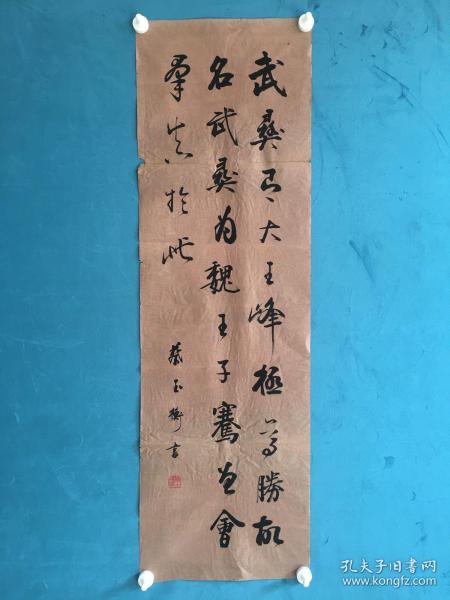 武彝有大王峰極尊勝故
名武彝爲魏王子騫曾會
羣真於此
蔡玉衡書
孔夫子旧书网
www.kongfz.com